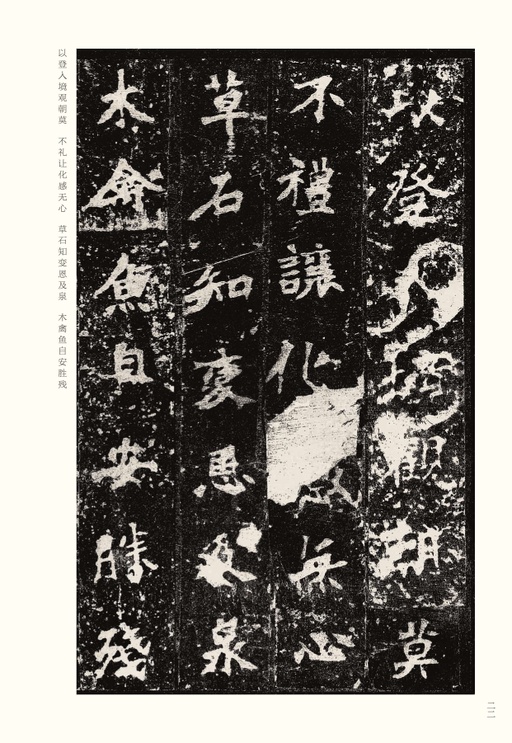 以登墻觀朝莫
不禮讓化感無心
草石知變恩及泉
木禽魚自安勝殘
以登人墙观朝莫 不礼让化感无心 草石知变恩及泉 木禽鱼自安胜残